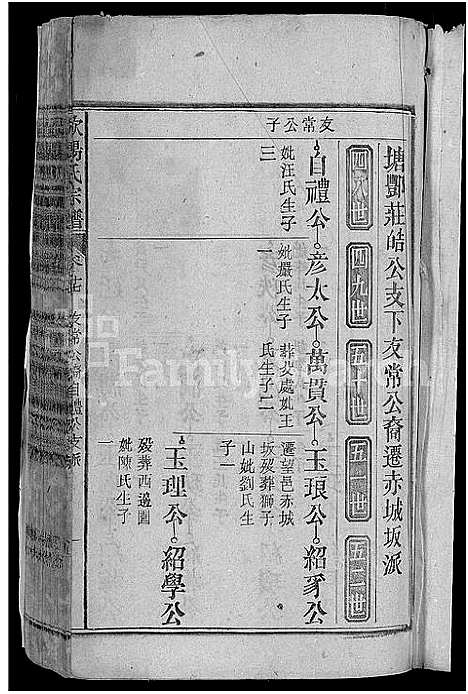 塘酆莊皓公支下友常公裔遷赤城坂派
四八世
四九世
五十世
五一世
五二世
友常公子
自禮公
彦太公
萬貫公
玉琅公
紹豸公
妣汪氏生子
三
妣嚴氏生子
一
葬父處妣王
氏生子二
遷望邑赤城
坂殁葬獅子
山妣劉氏生
子一
玉理公
紹學公
殁葬西邊園
妣陳氏生子
一
氏宗譜
友常公裔自禮公支派
FamilySearch